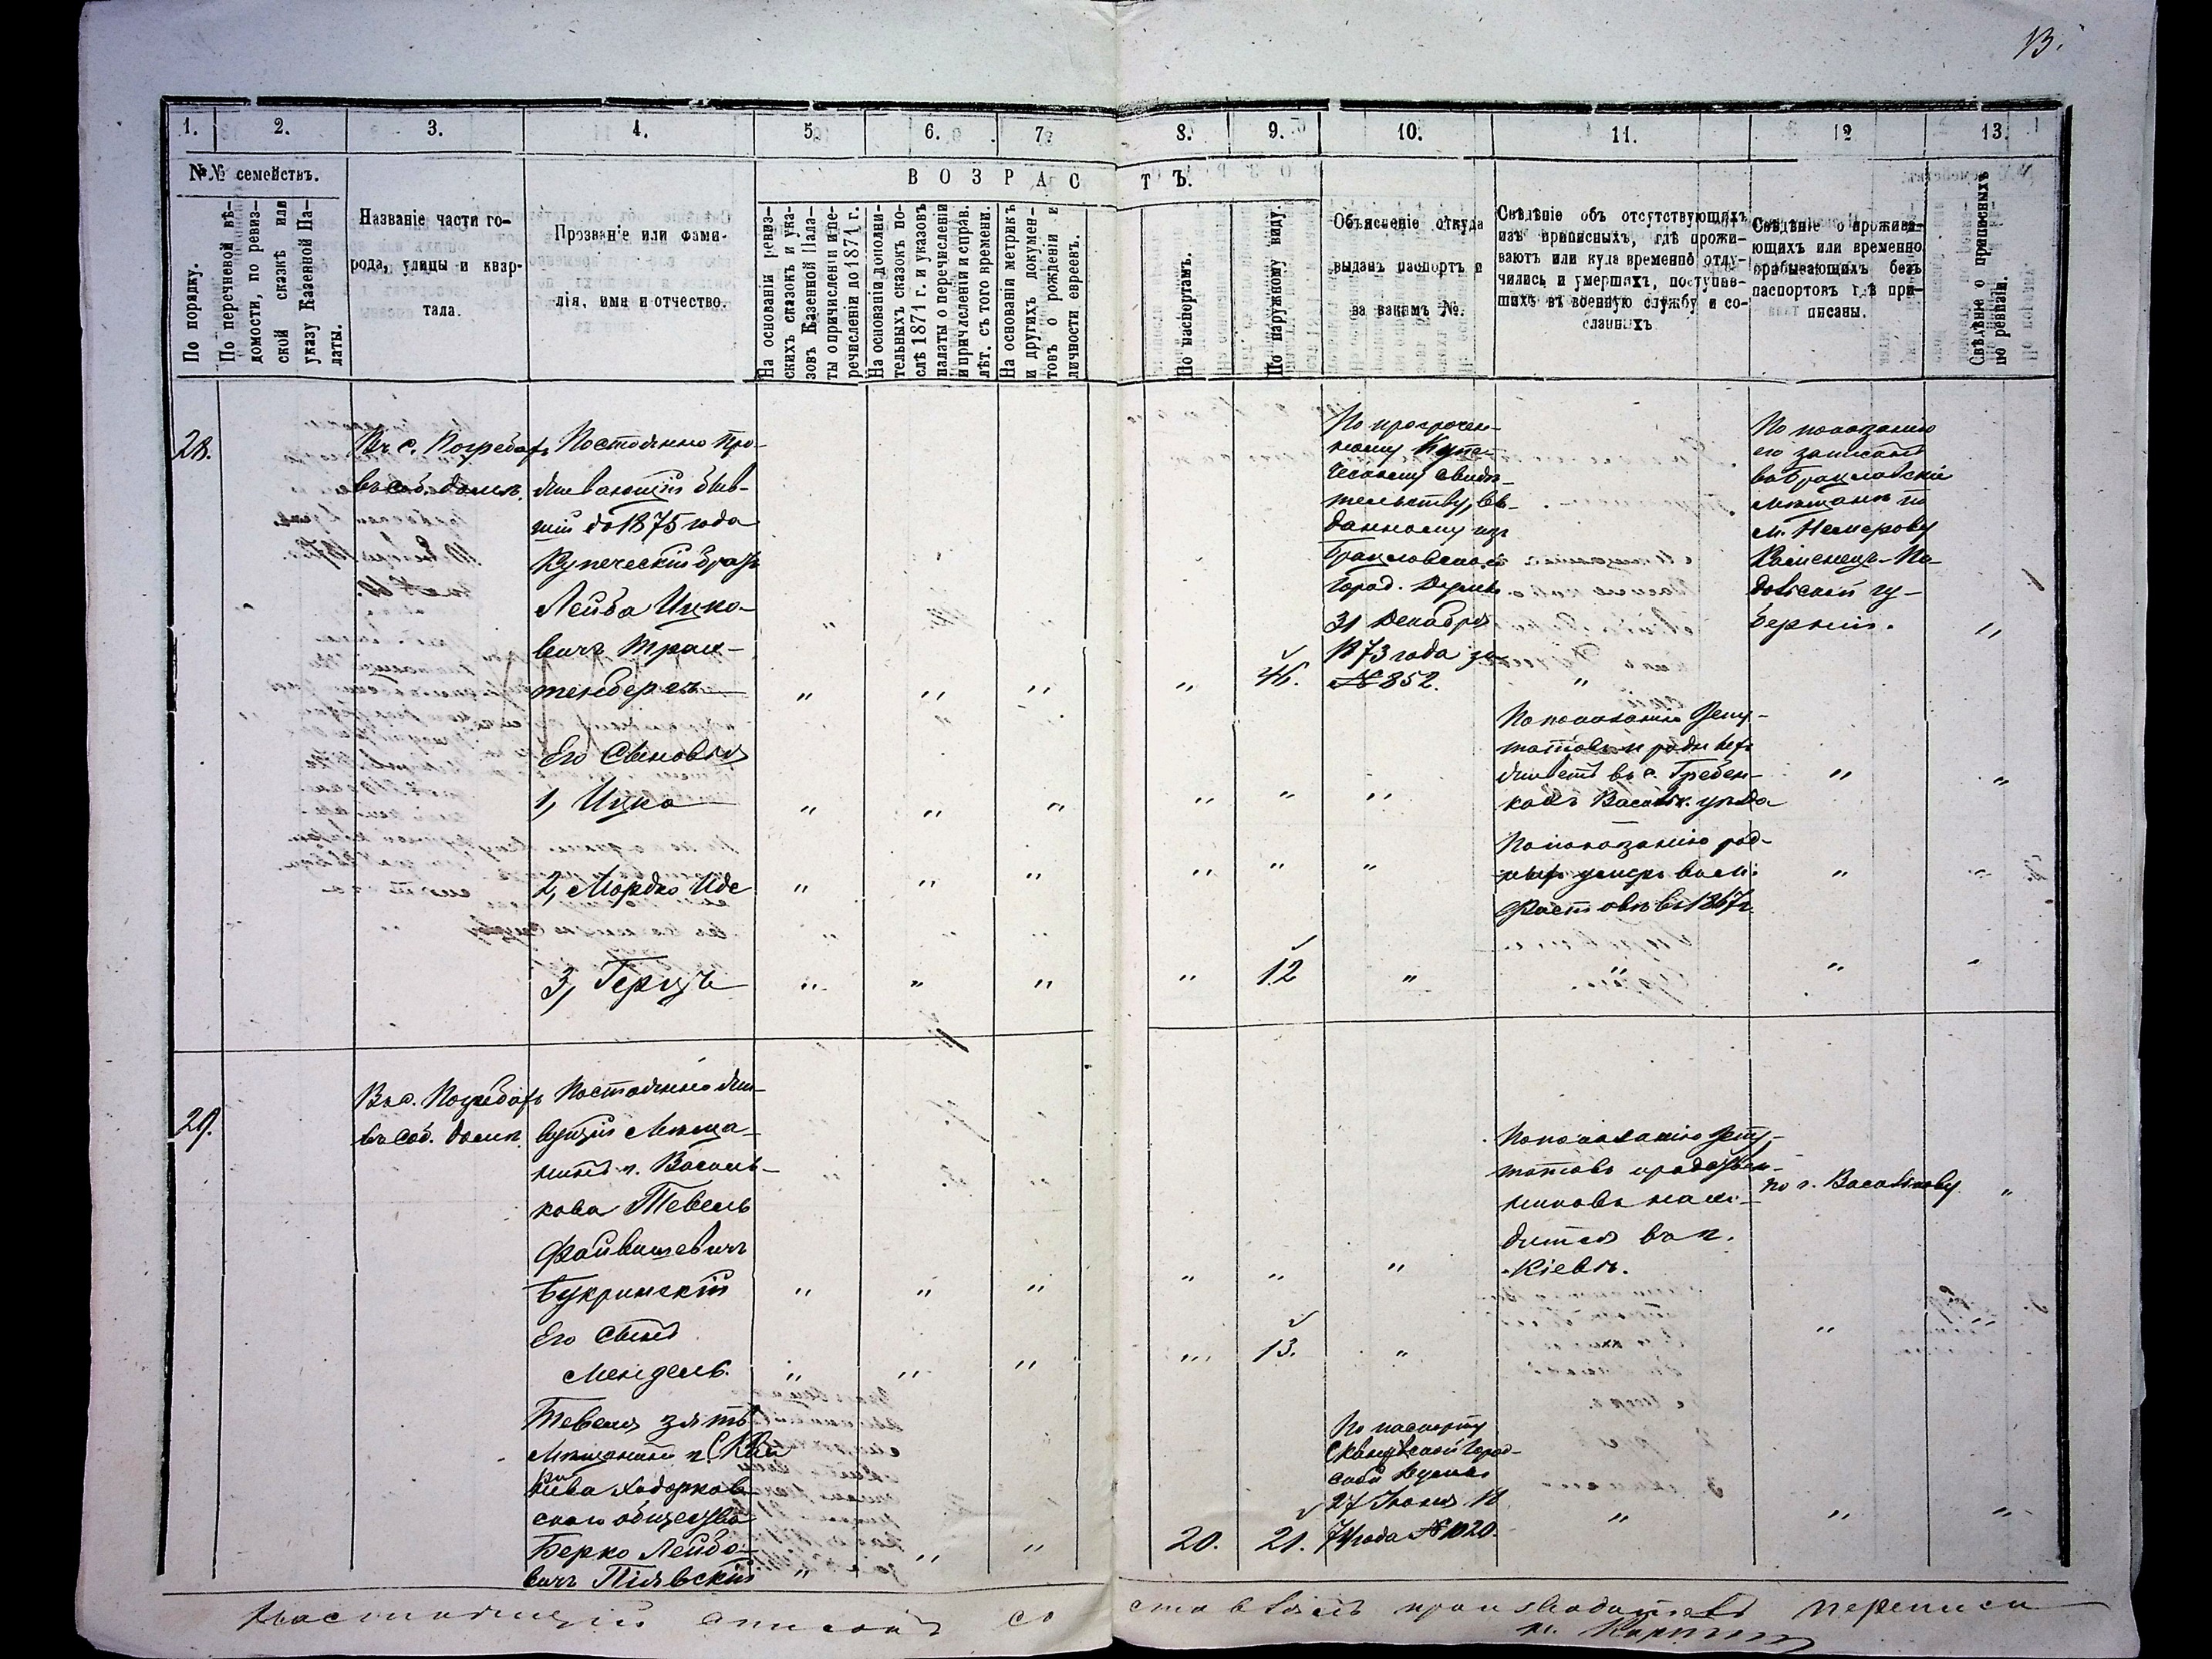 13.
1.
2.
3.
4.
5.
6.
7.
8.
9.
10.
11.
12
13.
№№ семействъ.
По порядку.
По перечневой вѣ-
домости, по ревиз-
ской сказкѣ или
указу Казенной Па-
латы.
Названіе части го-
рода, улицы и квар-
тала.
Прозваніе или фами-
лія, имя и отчество.
ВОЗРАСТЪ.
На основаніи ревиз-
скихъ сказокъ и ука-
зовъ Казенной Пала-
ты о причисленіи и пе-
речисленіи до 1871 г.
На основаніи дополни-
тельныхъ сказокъ по-
слѣ 1871 г. и указовъ
палаты о перечисленіи
и причисленіи и справ.
лѣт. съ того времени.
На основаніи метрикъ
и другихъ докумен-
товъ о рожденіи и
личности евреевъ.
По паспортамъ.
По наружному виду.
Объясненіе откуда
выданъ паспортъ и
за какимъ №.
Свѣдѣніе объ отсутствующихъ
изъ приписныхъ, гдѣ прожи-
ваютъ или куда временно отлу-
чились и умершихъ, поступив-
шихъ въ военную службу и со-
сланныхъ
Свѣдѣніе о прожива-
ющихъ или временно
пребывающихъ безъ
паспортовъ гдѣ при-
писаны.
Свѣдѣніе о приписныхъ
по ревизіи.
28.
Въ с. Погребахъ
въ соб. домѣ.
Постоянно про-
живающій быв-
шій до 1875 года
Купеческій братъ
Лейба Ицко-
вичъ Трах-
тенбергъ
46.
По просрочен-
ному Купе-
ческому свидѣ-
тельству, вы-
данному изъ
Брацловской
город. Думы
31 Декабря
1873 года за
№ 852.
По показанію
его записанъ
въ Брацлавскіе
мѣщане по
м. Немерову
Каменецъ-По-
дольской гу-
берніи.
Его Сыновья
1, Ицко
По показанію Депу-
татовъ и родныхъ
живетъ въ с. Гребен-
кахъ Васильк. уѣзда
2, Мордко Иде
По показанію род-
ныхъ умеръ въ м.
Фастовѣ въ 1867 г.
3, Герцъ
12
29.
Въ с. Погребахъ
въ соб. домѣ.
Постоянно жи-
вущій Мѣща-
нинъ г. Василь-
кова Тевель
Файвишевичъ
Букринскій
По показанію Депу-
татовъ и родствен-
никовъ нахо-
дится въ г.
Кіевѣ.
по г. Василькову
Его Сынъ
Мендель.
13.
Тевеля зять
Мѣщанинъ г. Сква
Ходорков-
скаго общества
Берко Лейбо-
вичъ Пілявскій
20.
21.
По паспорту
Сквирской Город-
ской Думы
27 Іюня 18
74 года № 1020.
Настоящій списокъ составлялъ производитель переписи